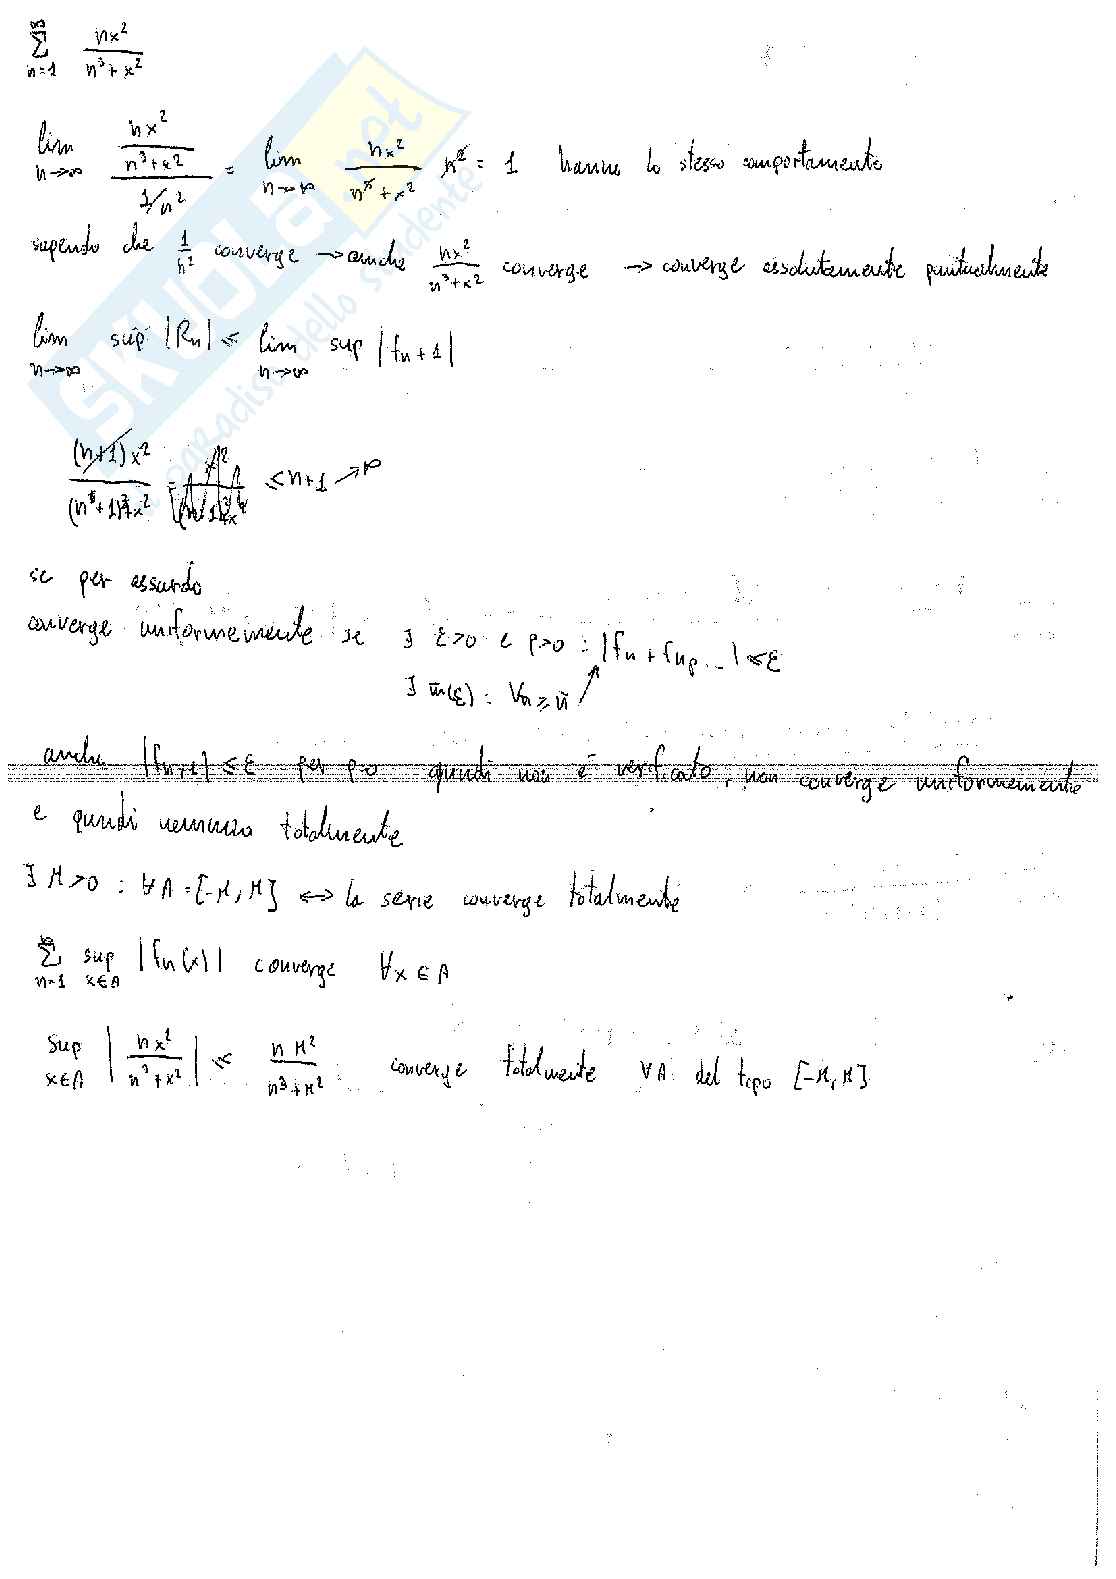 ∞
∑ nx² / (n³+x²)
n=1
lim n→∞ (nx² / (n³+x²)) / (1/n²) = lim n→∞ nx² / (n³+x²) n² = 1 hanno lo stesso comportamento
sapendo che 1/n² converge → anche nx² / (n³+x²) converge → converge assolutamente puntualmente
lim n→∞ sup |Rn| ≤ lim n→∞ sup |fn+1|
(n+1)x² / (n+1)³+x² ≤ n+1 → ∞
se per assurdo
converge uniformemente se ∃ ε>0 e p>0 : |fn + fnp ... | ≤ ε
∃ n̄(ε) : ∀n ≥ n̄
anche |fn+1| ≤ ε per p=0 quindi non è verificato, non converge uniformemente
e quindi nemmeno totalmente
∃ M>0 : ∀A=[-M, M] ⟷ la serie converge totalmente
∞
∑ sup |fn(x)| converge ∀x ∈ A
n=1 x∈A
sup x∈A | nx² / (n³+x²) | ≤ nM² / (n³+M²) converge totalmente ∀A del tipo [-M, M]
SKUOLA.net
il paradiso dello studente